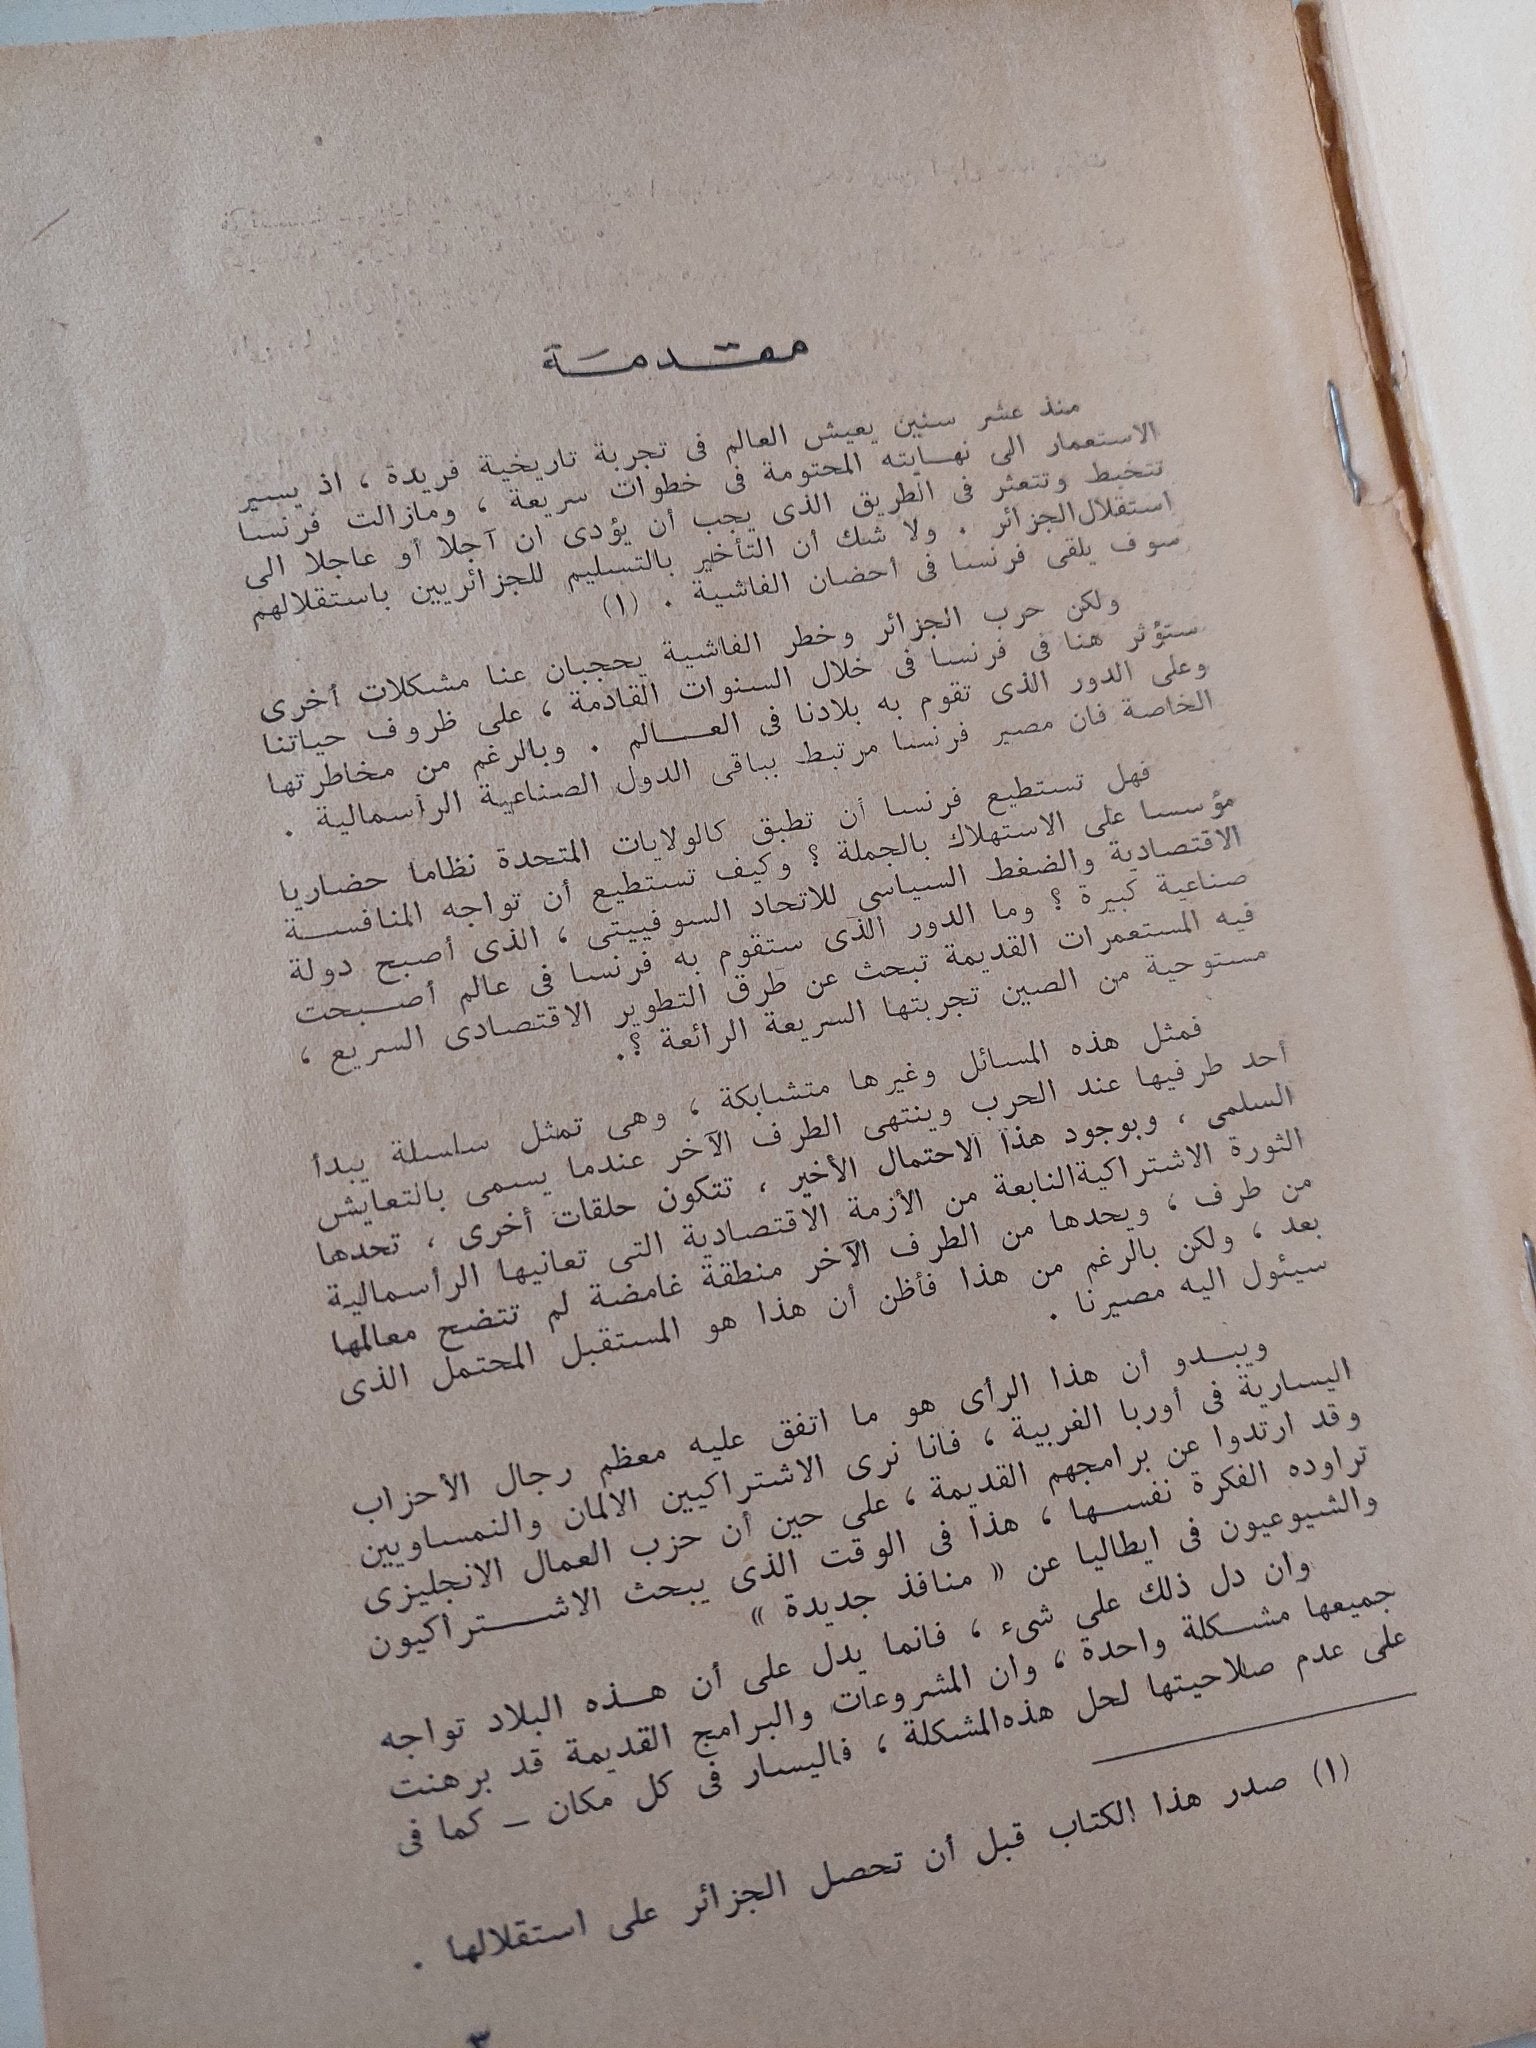 مقدمة
منذ عشر سنين يعيش العالم فى تجربة تاريخية فريدة ، اذ يسير
الاستعمار الى نهايته المحتومة فى خطوات سريعة ، ومازالت فرنسا
تتخبط وتتعثر فى الطريق الذى يجب أن يؤدى ان آجلا أو عاجلا الى
استقلال الجزائر . ولا شك أن التأخير بالتسليم للجزائريين باستقلالهم
سوف يلقى فرنسا فى أحضان الفاشية . (١)
ولكن حرب الجزائر وخطر الفاشية يحجبان عنا مشكلات أخرى
ستؤثر هنا فى فرنسا فى خلال السنوات القادمة ، على ظروف حياتنا
وعلى الدور الذى تقوم به بلادنا فى العالم . وبالرغم من مخاطرتها
الخاصة فان مصير فرنسا مرتبط بباقى الدول الصناعية الرأسمالية .
فهل تستطيع فرنسا أن تطبق كالولايات المتحدة نظاما حضاريا
مؤسسا على الاستهلاك بالجملة ؟ وكيف تستطيع أن تواجه المنافسة
الاقتصادية والضغط السياسى للاتحاد السوفييتى ، الذى أصبح دولة
صناعية كبيرة ؟ وما الدور الذى ستقوم به فرنسا فى عالم أصبحت
فيه المستعمرات القديمة تبحث عن طرق التطوير الاقتصادى السريع ،
مستوحية من الصين تجربتها السريعة الرائعة ؟.
فمثل هذه المسائل وغيرها متشابكة ، وهى تمثل سلسلة يبدأ
أحد طرفيها عند الحرب وينتهى الطرف الآخر عندما يسمى بالتعايش
السلمى ، وبوجود هذا الاحتمال الأخير ، تتكون حلقات أخرى ، تحدها
الثورة الاشتراكية النابعة من الأزمة الاقتصادية التى تعانيها الرأسمالية
من طرف ، ويحدها من الطرف الآخر منطقة غامضة لم تتضح معالمها
بعد ، ولكن بالرغم من هذا فأظن أن هذا هو المستقبل المحتمل الذى
سيئول اليه مصيرنا .
ويبدو أن هذا الرأى هو ما اتفق عليه معظم رجال الأحزاب
اليسارية فى أوربا الغربية ، فانا نرى الاشتراكيين الالمان والنمساويين
وقد ارتدوا عن برامجهم القديمة ، على حين أن حزب العمال الانجليزى
تراوده الفكرة نفسها ، هذا فى الوقت الذى يبحث الاشتراكيون
والشيوعيون فى ايطاليا عن « منافذ جديدة »
وان دل ذلك على شىء ، فانما يدل على أن هذه البلاد تواجه
جميعها مشكلة واحدة ، وان المشروعات والبرامج القديمة قد برهنت
على عدم صلاحيتها لحل هذه المشكلة ، فاليسار فى كل مكان – كما فى
(١) صدر هذا الكتاب قبل أن تحصل الجزائر على استقلالها .
٣